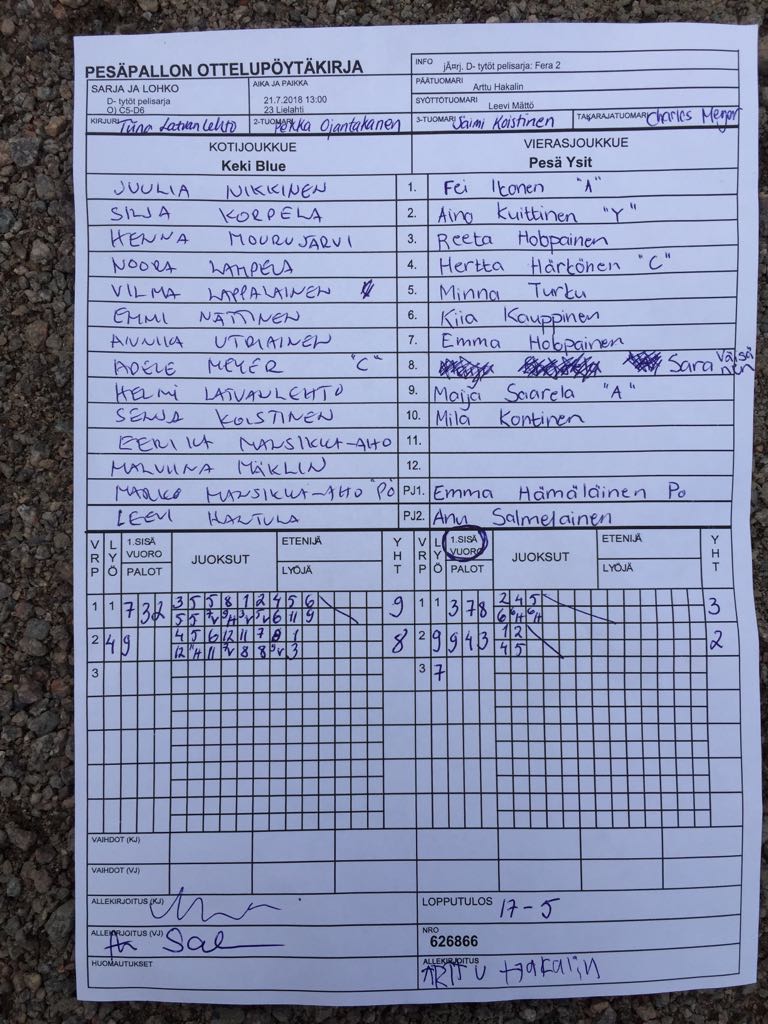 PESÄPALLON OTTELUPÖYTÄKIRJA
INFO jÃ¤rj. D- tytöt pelisarja: Fera 2
SARJA JA LOHKO
D- tytöt pelisarja
O) C5-D6
AIKA JA PAIKKA
21.7.2018 13:00
23 Lielahti
PÄÄTUOMARI
Arttu Hakalin
SYÖTTÖTUOMARI
Leevi Mättö
KIRJURI Tiina Latvanlehto 2-TUOMARI Pekka Ojantakanen 3-TUOMARI Saimi Koistinen TAKARAJATUOMARI Charles Meyer
KOTIJOUKKUE VIERASJOUKKUE
Keki Blue Pesä Ysit
JUULIA NIKKINEN 1. Fei Ikonen "A"
SILJA KORPELA 2. Aino Kuittinen "Y"
HENNA MOURUJÄRVI 3. Reeta Hobpainen
NOORA LAMPELA 4. Hertta Härkönen "C"
VILMA LAPPALAINEN 5. Minna Turku
EMMI NÄTTINEN 6. Kiia Kauppinen
ANNIKA UTRIAINEN 7. Emma Hobpainen
ADELE MEYER "C" 8. Sara Väisänen
HELMI LATVANLEHTO 9. Maija Saarela "A"
SENJA KOISTINEN 10. Mila Kontinen
EERIKA MANSIKKA-AHO 11.
MALVIINA MÄKLIN 12.
MARKO MANSIKKA-AHO "PÖ" PJ1. Emma Hämäläinen Po
LEEVI HANTULA PJ2. Anu Salmelainen
VRP LYÖ 1.SISÄ VUORO PALOT JUOKSUT ETENIJÄ LYÖJÄ YHT VRP LYÖ 1.SISÄ VUORO PALOT JUOKSUT ETENIJÄ LYÖJÄ YHT
1 1 7 3 2 3 5 5 8 1 2 4 5 6 9 1 1 3 7 8 2 4 5 3
2 4 9 4 5 6 12 11 7 8 1 8 2 9 9 4 3 1 2 2
4 5
3 3 7
VAIHDOT (KJ)
VAIHDOT (VJ)
ALLEKIRJOITUS (KJ) LOPPUTULOS 17-5
ALLEKIRJOITUS (VJ) NRO
626866
HUOMAUTUKSET ALLEKIRJOITUS
ARTTU HAKALIN